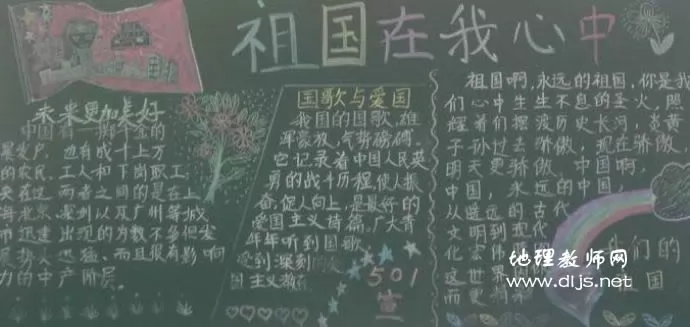 祖国在我心中
未来更加美好
中国有一掷千金的
暴发户,也有成千上万
的农民、工人和下岗职工
夹在这两者之间的是在上
海、北京以及广州等城
市迅速出现的为数不多但发
展势头迅猛、而且很有影响
力的中产阶层。
国歌与爱国
我国的国歌,雄
浑豪放,气势磅礴。
它记录着中国人民英
勇的战斗历程,使人振
奋,促人向上,是最好的
爱国主义诗篇,广大青
年每听到国歌
受到深刻的
国主义
501
宣
祖国啊,永远的祖国,你是我
们心中生生不息的圣火,照
辉着们摆渡历史长河,炎黄
子孙过去骄傲,现在骄傲,
明天更骄傲。中国啊,
中国,永远的中国,
从遥远的古代
文明到现代
化
这世界
而更
我们的
祖国
地理教师网
www.dljs.net